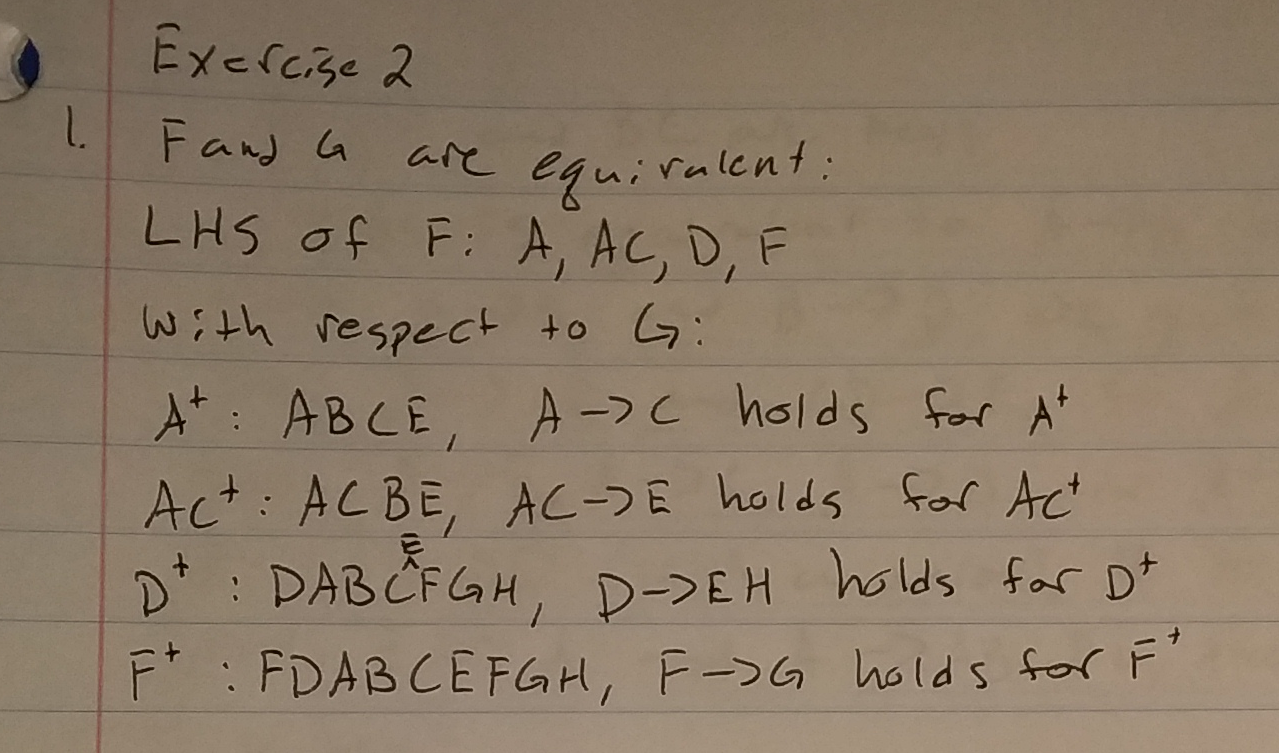 Exercise 2
1. F and G are equivalent:
LHS of F: A, AC, D, F
With respect to G:
A⁺ : ABCE, A->C holds for A⁺
AC⁺ : ACBE, AC->E holds for AC⁺
D⁺ : DABCEFGH, D->EH holds for D⁺
F⁺ : FDABCEFGH, F->G holds for F⁺